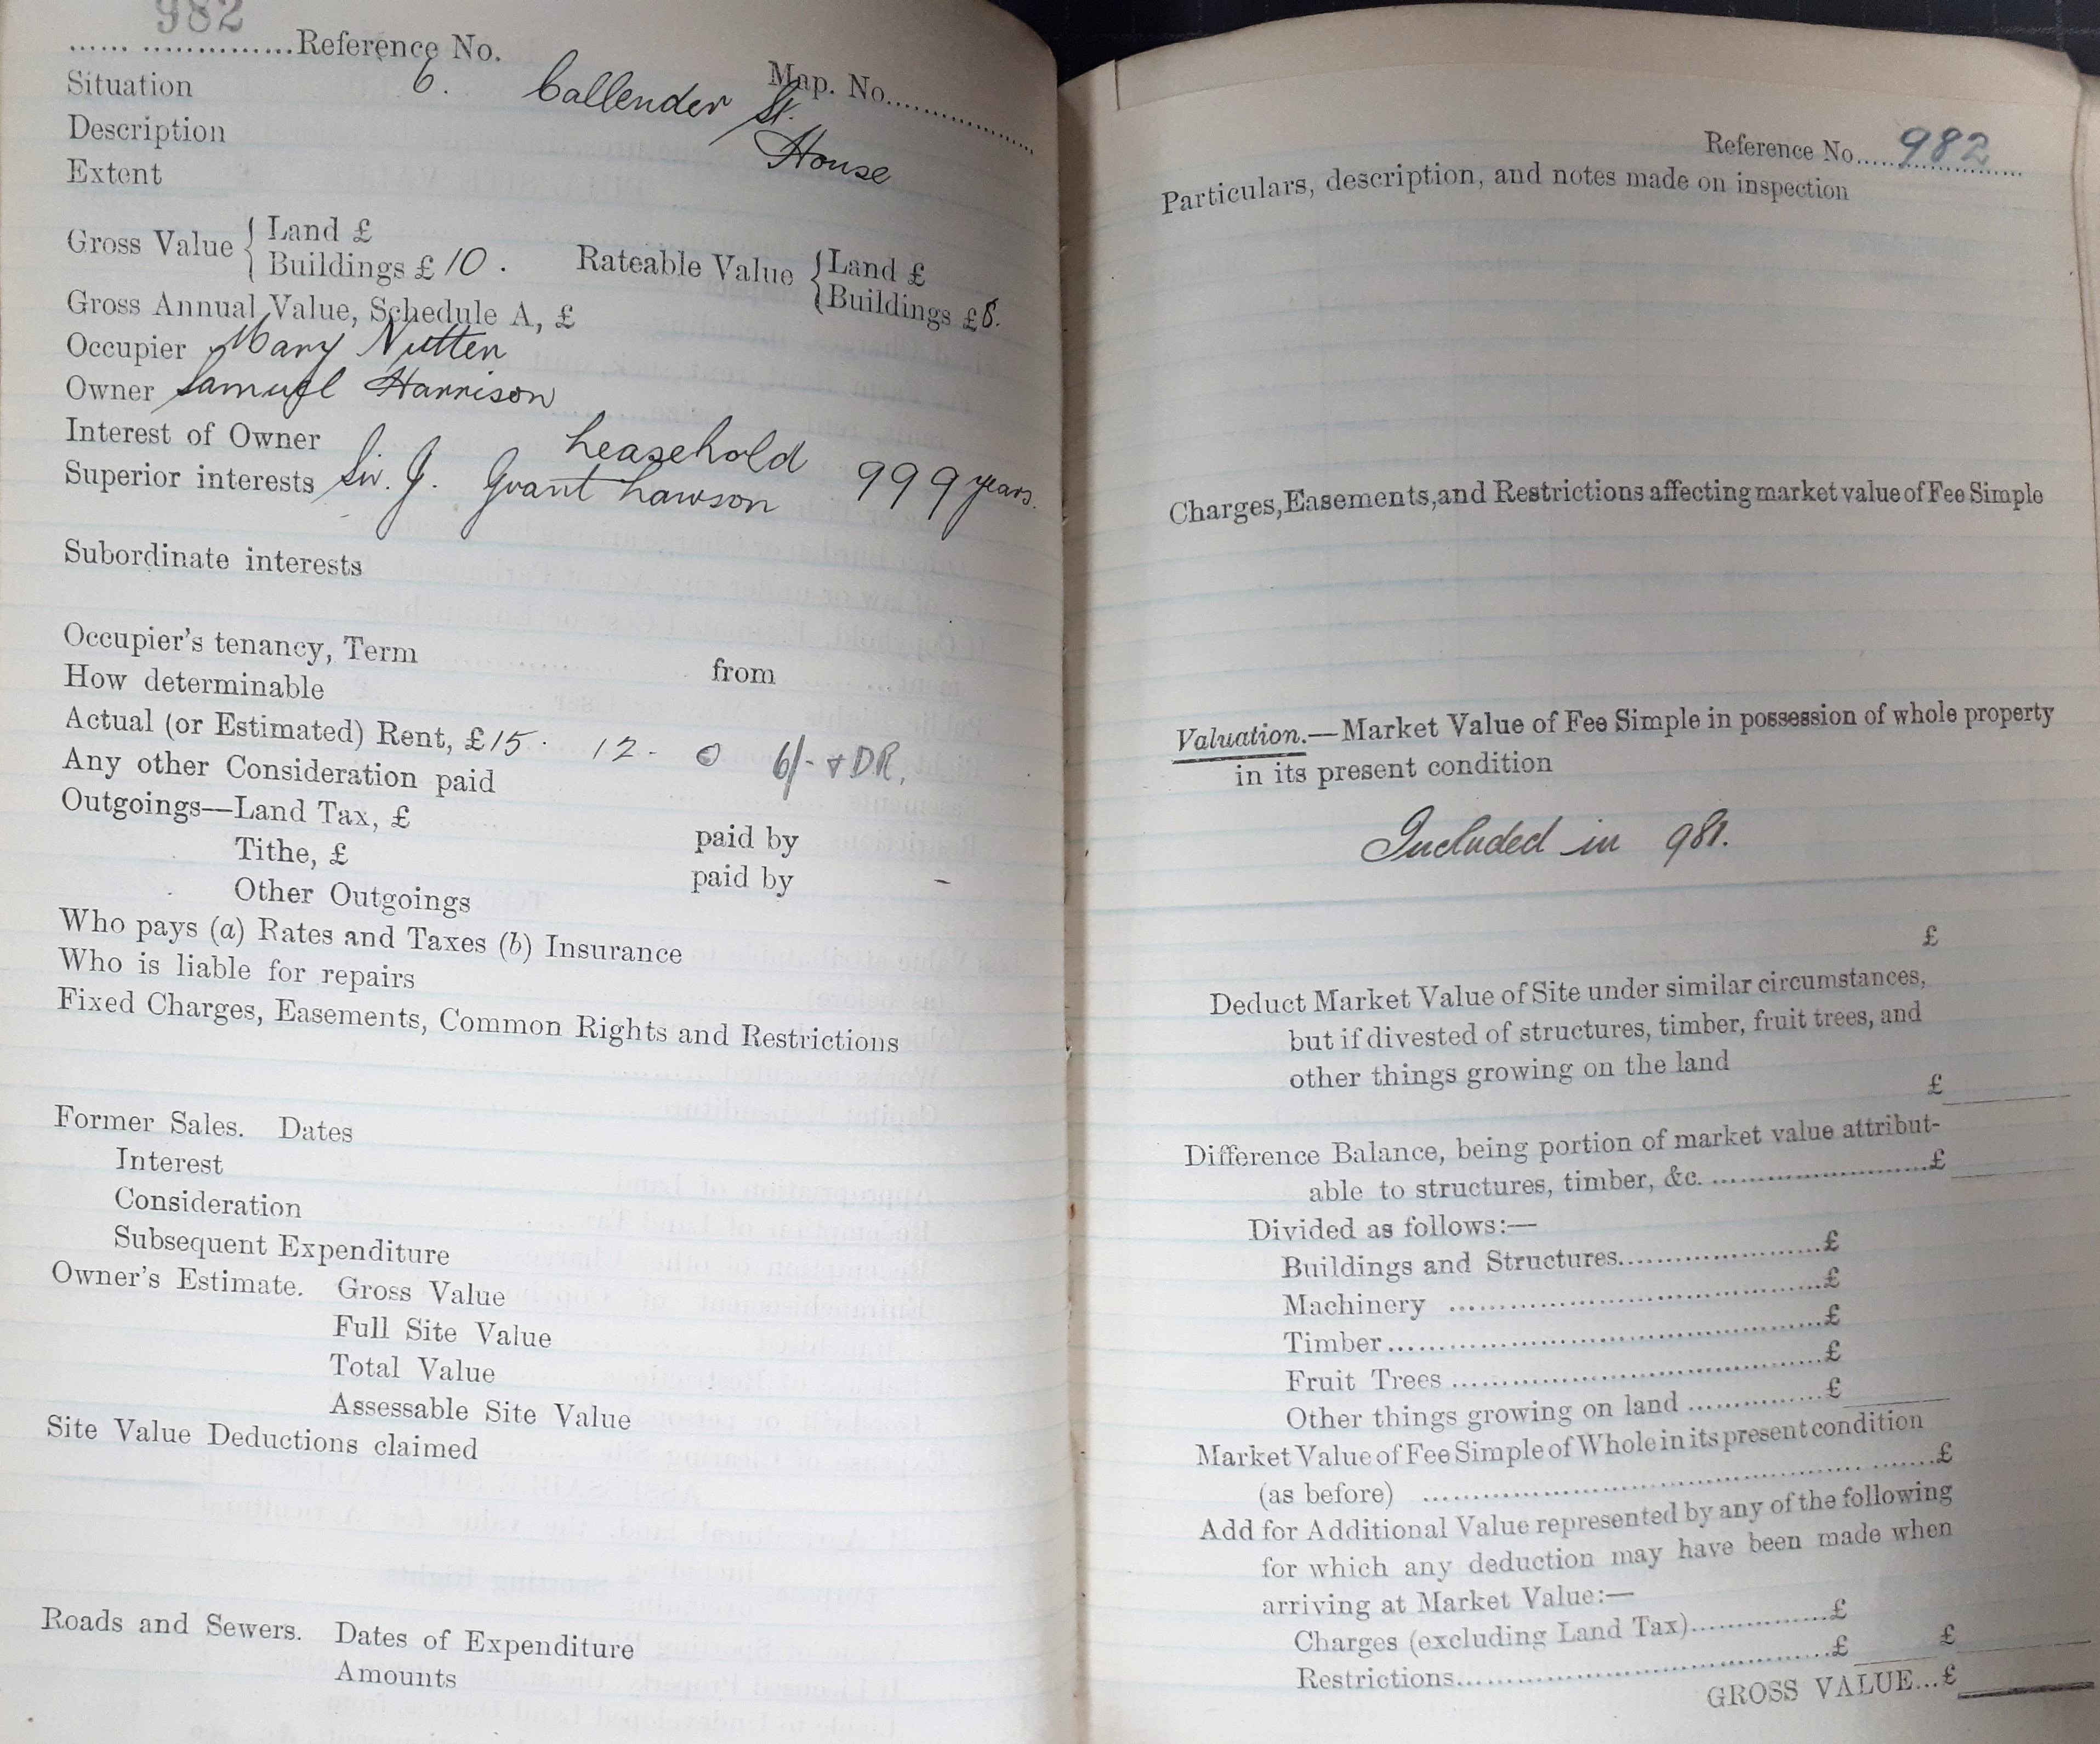 982
...................Reference No.
Map. No..................
Situation 6. Callender St.
Description House
Extent
Gross Value { Land £
Buildings £ 10 .
Rateable Value { Land £
Buildings £ 8.
Gross Annual Value, Schedule A, £
Occupier Mary Nutten
Owner Samuel Harrison
Interest of Owner Leasehold 999 years.
Superior interests Sir. J. Grant Lawson
Subordinate interests
Occupier's tenancy, Term from
How determinable
Actual (or Estimated) Rent, £ 15 . 12 - 0 6/- + D.R.
Any other Consideration paid
Outgoings—Land Tax, £ paid by
Tithe, £ paid by
Other Outgoings
Who pays (a) Rates and Taxes (b) Insurance
Who is liable for repairs
Fixed Charges, Easements, Common Rights and Restrictions
Former Sales. Dates
Interest
Consideration
Subsequent Expenditure
Owner's Estimate. Gross Value
Full Site Value
Total Value
Assessable Site Value
Site Value Deductions claimed
Roads and Sewers. Dates of Expenditure
Amounts
Reference No. 982
Particulars, description, and notes made on inspection
Charges, Easements, and Restrictions affecting market value of Fee Simple
Valuation.—Market Value of Fee Simple in possession of whole property
in its present condition
Included in 981.
£
Deduct Market Value of Site under similar circumstances,
but if divested of structures, timber, fruit trees, and
other things growing on the land
£
Difference Balance, being portion of market value attribut-
able to structures, timber, &c. ........................£
Divided as follows:—
Buildings and Structures......................£
Machinery ........................................£
Timber..............................................£
Fruit Trees ........................................£
Other things growing on land ..............£
Market Value of Fee Simple of Whole in its present condition
(as before) ..................................................£
Add for Additional Value represented by any of the following
for which any deduction may have been made when
arriving at Market Value:—
Charges (excluding Land Tax)...............£
Restrictions........................................£ £
GROSS VALUE...£